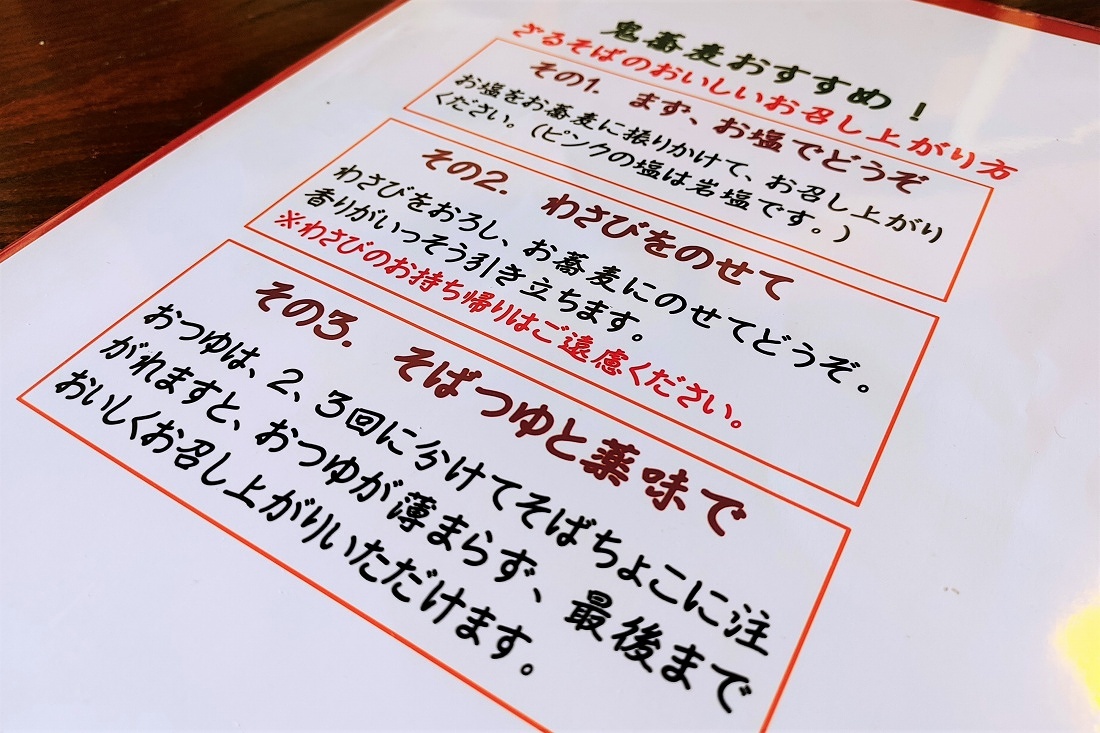 鬼蕎麦おすすめ！
ざるそばのおいしいお召し上がり方
その1. まず、お塩でどうぞ
お塩をお蕎麦に振りかけて、お召し上がり
ください。(ピンクの塩は岩塩です。)
その2. わさびをのせて
わさびをおろし、お蕎麦にのせてどうぞ。
香りがいっそう引き立ちます。
※わさびのお持ち帰りはご遠慮ください。
その3. そばつゆと薬味で
おつゆは、2、3回に分けてそばちょこに注
がれますと、おつゆが薄まらず、最後まで
おいしくお召し上がりいただけます。